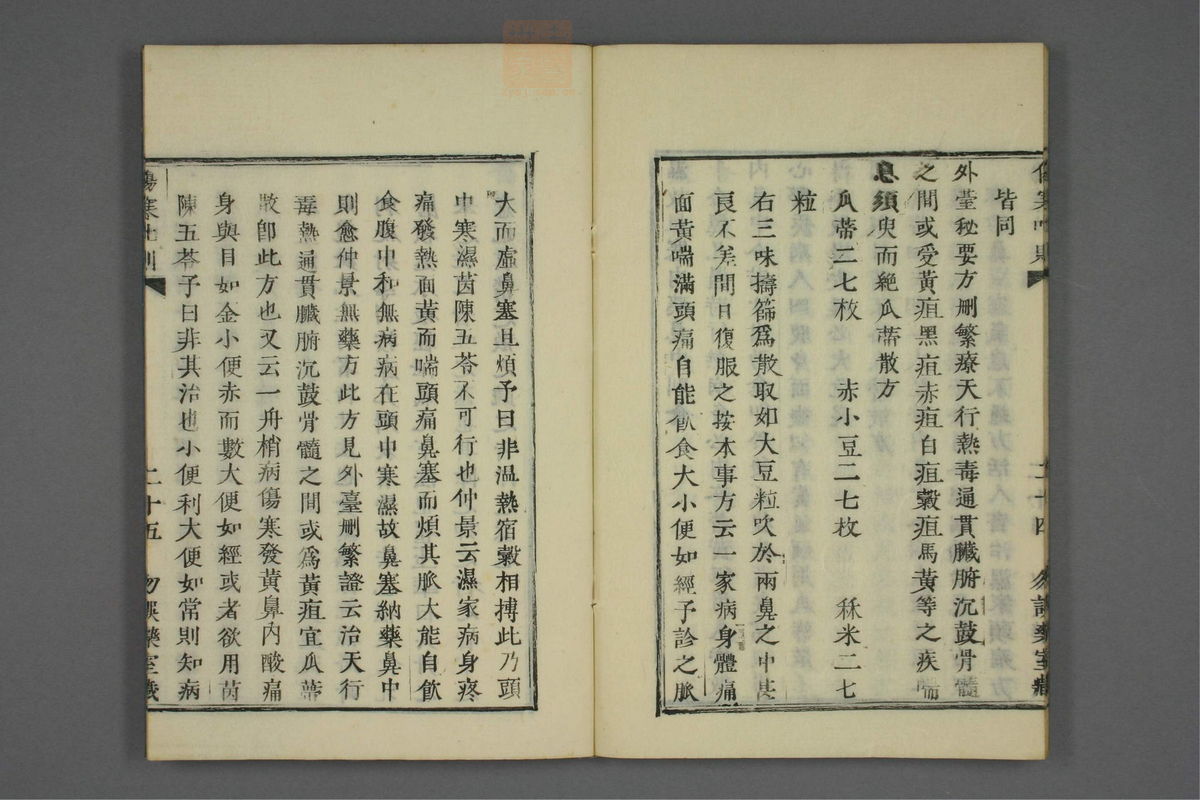 皆同
外臺秘要方刪繁療天行熱毒通貫臟腑沉鼓骨髓
之間或受黃疸黑疸赤疸白疸穀疸馬黃等之疾喘
息須臾而絶瓜蔕散方
瓜蔕二七枚 赤小豆二七枚 秫米二七
粒
右三味擣篩爲散取如大豆粒吹於兩鼻之中甚
良不差間日復服之按本事方云一家病身體痛
面黃喘滿頭痛自能飮食大小便如經予診之脈
大而虛鼻塞且煩予曰非温熱宿穀相搏此乃頭
中寒濕茵陳五苓不可行也仲景云濕家病身疼
痛發熱面黃而喘頭痛鼻塞而煩其脈大能自飮
食腹中和無病病在頭中寒濕故鼻塞納藥鼻中
則愈仲景無藥方此方見外臺刪繁證云治天行
毒熱通貫臟腑沉鼓骨髓之間或爲黃疸宜瓜蔕
散卽此方也又云一舟梢病傷寒發黃鼻內酸痛
身與目如金小便赤而數大便如經或者欲用茵
陳五苓予曰非其治也小便利大便如常則知病
二十五